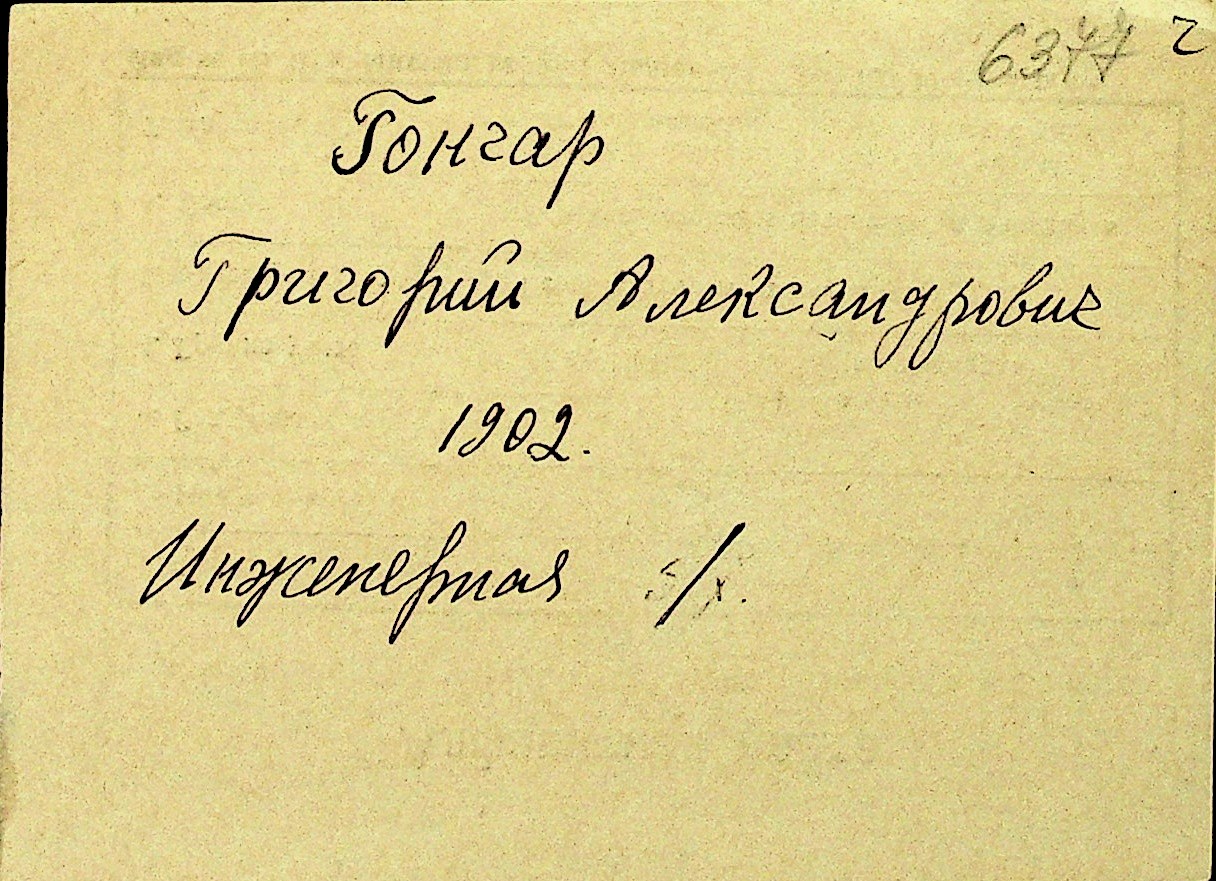 6377
Гончар
Григорий Александрович
1902.
Инженерная